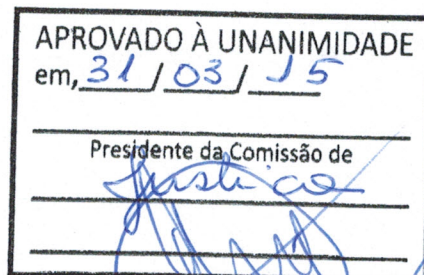 APROVADO À UNANIMIDADE
em, 31 / 03 / 15
Presidente da Comissão de
Justiça